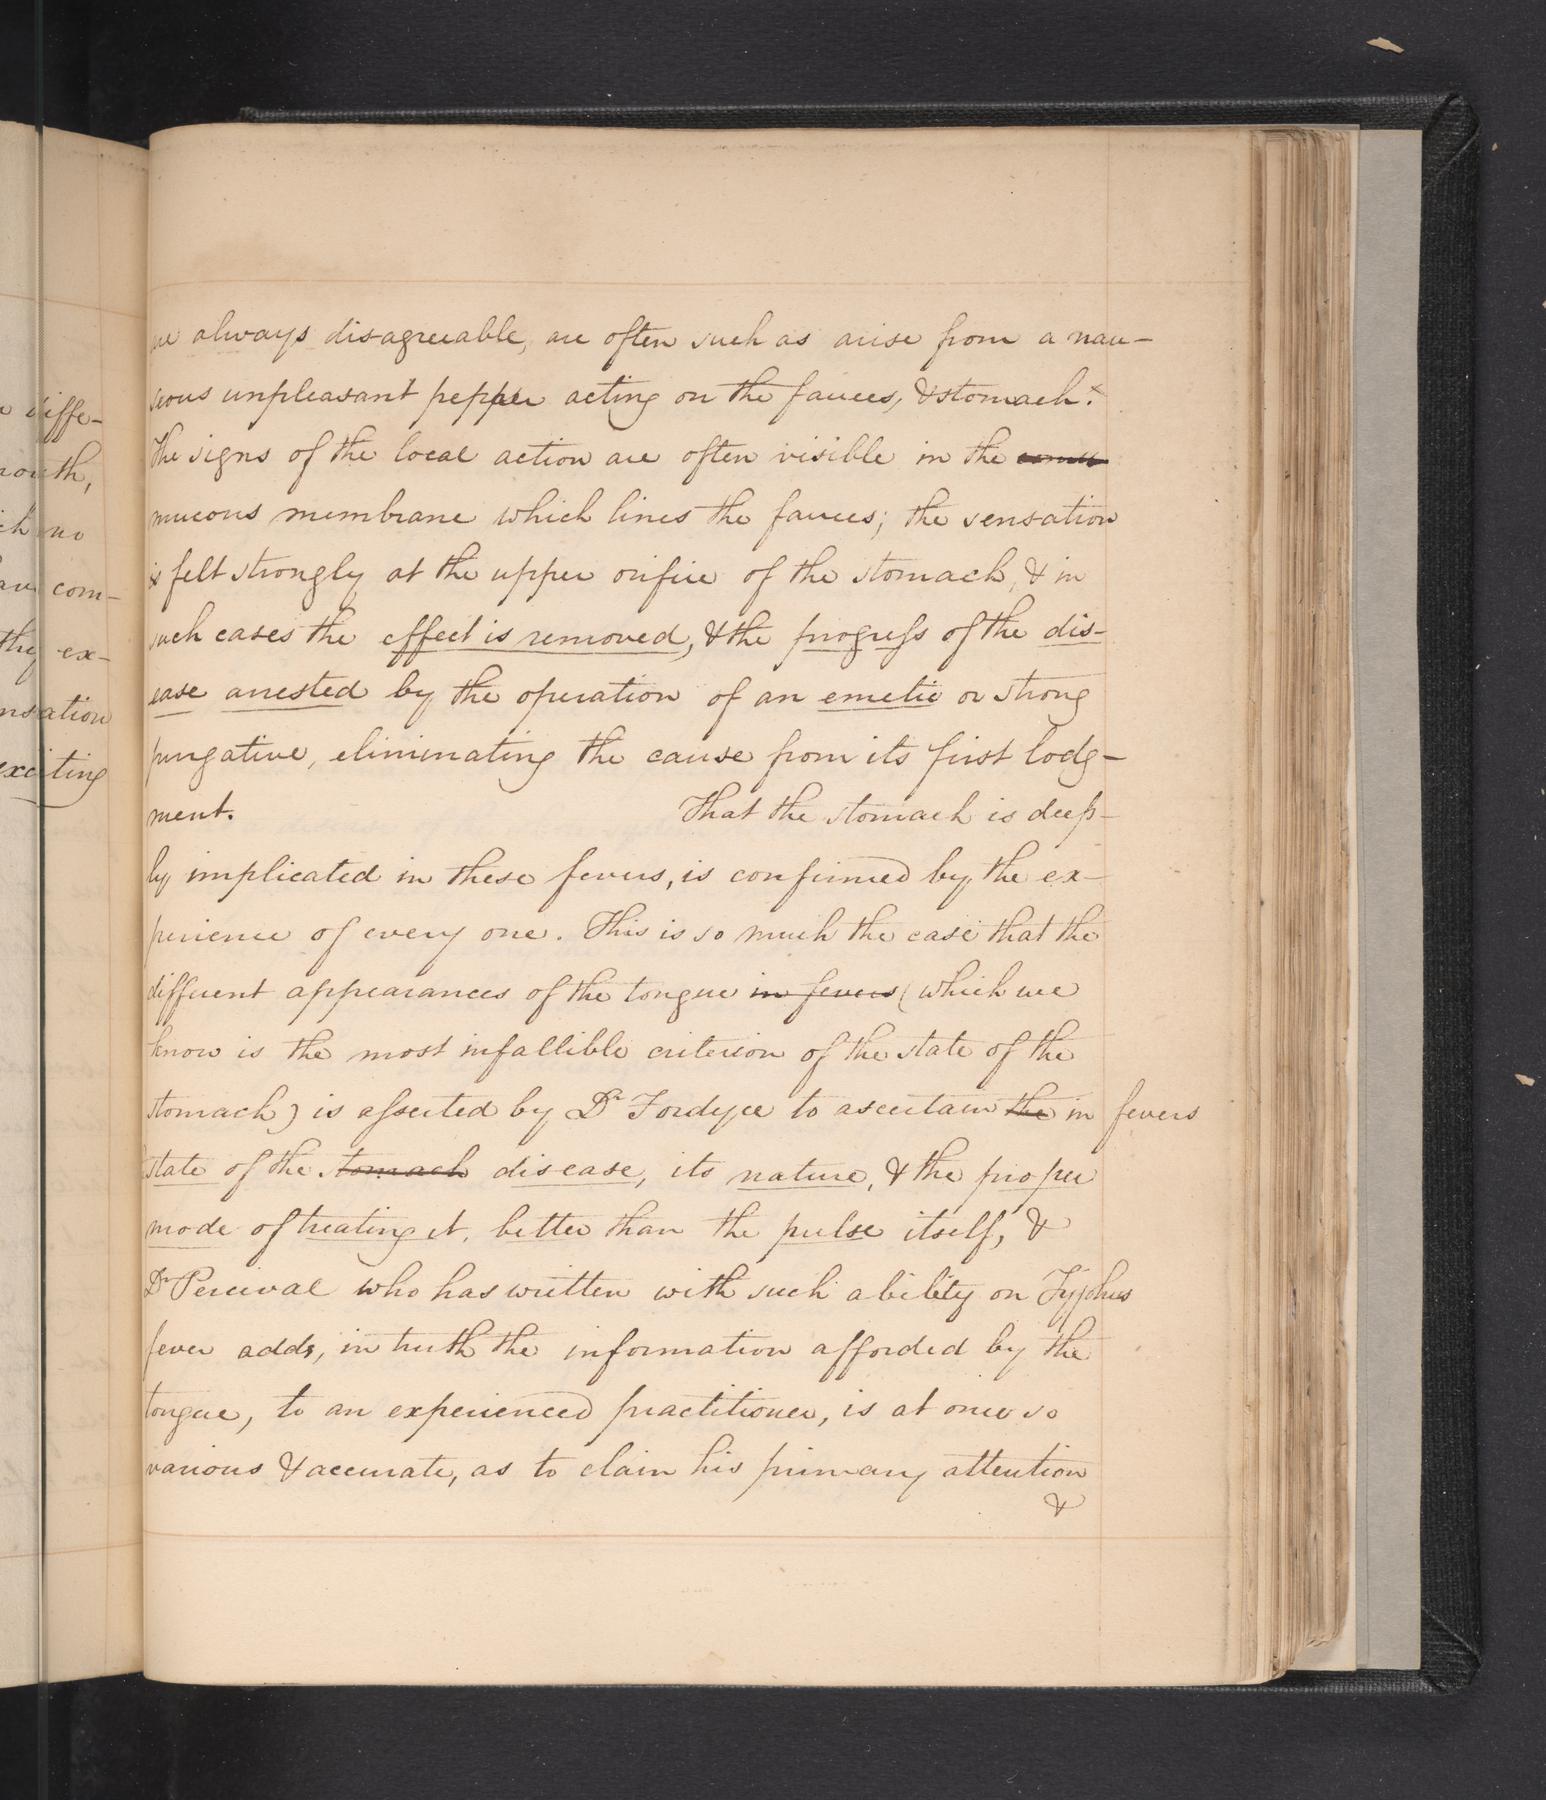 diffe-
outh,
ch no
com-
they ex-
nsation
exciting
are always disagreeable, are often such as arise from a nau-
seous unpleasant pepper acting on the fauces, & stomach. x
The signs of the local action are often visible in the
mucous membrane which lines the fauces; the sensation
is felt strongly at the upper orifice of the stomach, & in
such cases the effect is removed, & the progress of the dis-
ease arrested by the operation of an emetic or strong
purgative, eliminating the cause from its first lodg-
ment. That the stomach is deep-
ly implicated in these fevers, is confirmed by the ex-
perience of every one. This is so much the case that the
different appearances of the tongue in fevers (which we
know is the most infallible criterion of the state of the
stomach) is asserted by Dr Fordyce to ascertain the in fevers
state of the stomach disease, its nature, & the proper
mode of treating it, better than the pulse itself, &
Dr Percival who has written with such ability on Typhus
fever adds, in truth the information afforded by the
tongue, to an experienced practitioner, is at once so
various & accurate, as to claim his primary attention
&